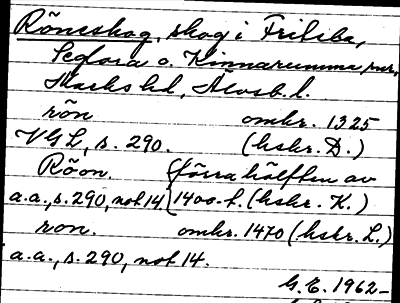 Röneskog, skog i Fritsla,
Seglora o. Kinnarumma snr,
Marks hd, Älvsb. l.
rön omkr. 1325
VGL, s. 290. (hskr. D.)
Röon. förra hälften av
a.a., s. 290, not 14. 1400-t. (hskr. K.)
ron. omkr. 1470 (hskr. L.)
a.a., s. 290, not 14.
G.E. 1962-